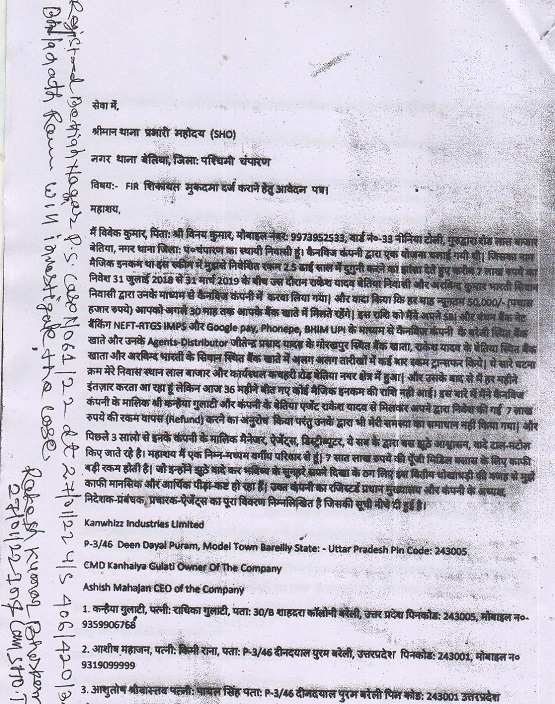 सेवा में,
श्रीमान थाना प्रभारी महोदय (SHO)
नगर थाना बेतिया, जिला: पश्चिमी चंपारण
विषय:- FIR शिकायत मुकदमा दर्ज कराने हेतु आवेदन पत्र।
महाशय,
मैं विवेक कुमार, पिता: श्री विनय कुमार, मोबाइल नंबर: 9973952533, वार्ड नं०-33 नोनिया टोली, गुरुद्वारा रोड लाल बाजार
बेतिया, नगर थाना जिला: प०चंपारण का स्थायी निवासी हूं। कैनविज कंपनी द्वारा एक योजना चलाई गयी थी। जिसका नाम
मैजिक इनकम था इस स्कीम में मुझसे निवेशित रकम 2.5 ढाई साल में दुगुनी करने का झांसा देते हुए करीब 7 लाख रुपये का
निवेश 31 जुलाई 2018 से 31 मार्च 2019 के बीच उस दौरान राकेश यादव बेतिया निवासी और अरविन्द कुमार भारती सिवान
निवासी द्वारा उनके माध्यम से कैनविज कंपनी में करवा लिया गया। और वादा किया कि हर माह न्यूतम 50,000/- (पचास
हजार रुपये) आपको अगले 30 माह तक आपके बैंक खाते में मिलते रहेंगे। इस राशि को मैंने अपने SBI और बंधन बैंक नेट
बैंकिंग NEFT-RTGS IMPS और Google pay, Phonepe, BHIM UPI के माध्यम से कैनविज कंपनी के बरेली स्थित बैंक
खाते और उनके Agents-Distributor जीतेन्द्र प्रसाद यादव के गोरखपुर स्थित बैंक खाता, राकेश यादव के बेतिया स्थित बैंक
खाता और अरविन्द भारती के सिवान स्थित बैंक खाते में अलग अलग तारीखों में कई बार रकम ट्रान्सफर किये। ये सारे घटना
क्रम मेरे निवास स्थान लाल बाजार और कार्यस्थल कचहरी रोड बेतिया नगर क्षेत्र में हुआ। और उसके बाद से मैं हर महीने
इंतज़ार करता आ रहा हूं लेकिन आज 36 महीने बीत गए कोई मैजिक इनकम की राशि नहीं आई। इस बारे में मैंने कैनविज
कंपनी के मालिक श्री कन्हैया गुलाटी और कंपनी के बेतिया एजेंट राकेश यादव से मिलकर अपने द्वारा निवेश की गई 7 लाख
रुपये की रकम वापस (Refund) करने का अनुरोध किया परंतु उनके द्वारा भी मेरी समस्या का समाधान नहीं किया गया। और
पिछले 3 सालो से इनके कंपनी के मालिक मैनेजर, ऐजेंट्स, डिस्ट्रीब्यूटर, ये सब के द्वारा बस झूठे आश्वासन, वादे टाल-मटोल
किए जाते रहे है। महाशय मैं एक निम्न-मध्यम वर्गीय परिवार से हूं। 7 सात लाख रुपये की पूँजी मिडिल क्लास के लिए काफी
बड़ी रकम होती है। जो इन्होंने झूठे वादे कर भविष्य के सुनहरे सपने दिखा के ठग लिए इस वित्तीय धोखाधड़ी की वजह से मुझे
काफी मानसिक और आर्थिक पीड़ा-कष्ट हो रहा है। उक्त कंपनी का रजिस्टर्ड प्रधान मुख्यालय और कंपनी के अध्यक्ष,
निदेशक-प्रबंधक, प्रचारक-ऐजेंट्स का पूरा विवरण निम्नलिखित है जिसकी सूची नीचे दी हुई है।
Kanwhizz Industries Limited
P-3/46 Deen Dayal Puram, Model Town Bareilly State: - Uttar Pradesh Pin Code: 243005
CMD Kanhaiya Gulati Owner Of The Company
Ashish Mahajan CEO of the Company
1. कन्हैया गुलाटी, पत्नी: राधिका गुलाटी, पता: 30/B शाहदरा कॉलोनी बरेली, उत्तर प्रदेश पिनकोड: 243005, मोबाइल न०-
9359906768
2. आशीष महाजन, पत्नी: किमी राना, पता: P-3/46 दीनदयाल पुरम बरेली, उत्तरप्रदेश पिनकोड: 243001, मोबाइल न०
9319099999
3. आशुतोष श्रीवास्तव पत्नी: पायल सिंह पता: P-3/46 दीनदयाल पुरम बरेली पिन कोड: 243001 उत्तरप्रदेश
Registered Bettiah Nagar P.S. Case No 61/22 dt 27/01/22 U/S 406/420/
Ram will investigate the case
Rakesh Kumar
27/01/22